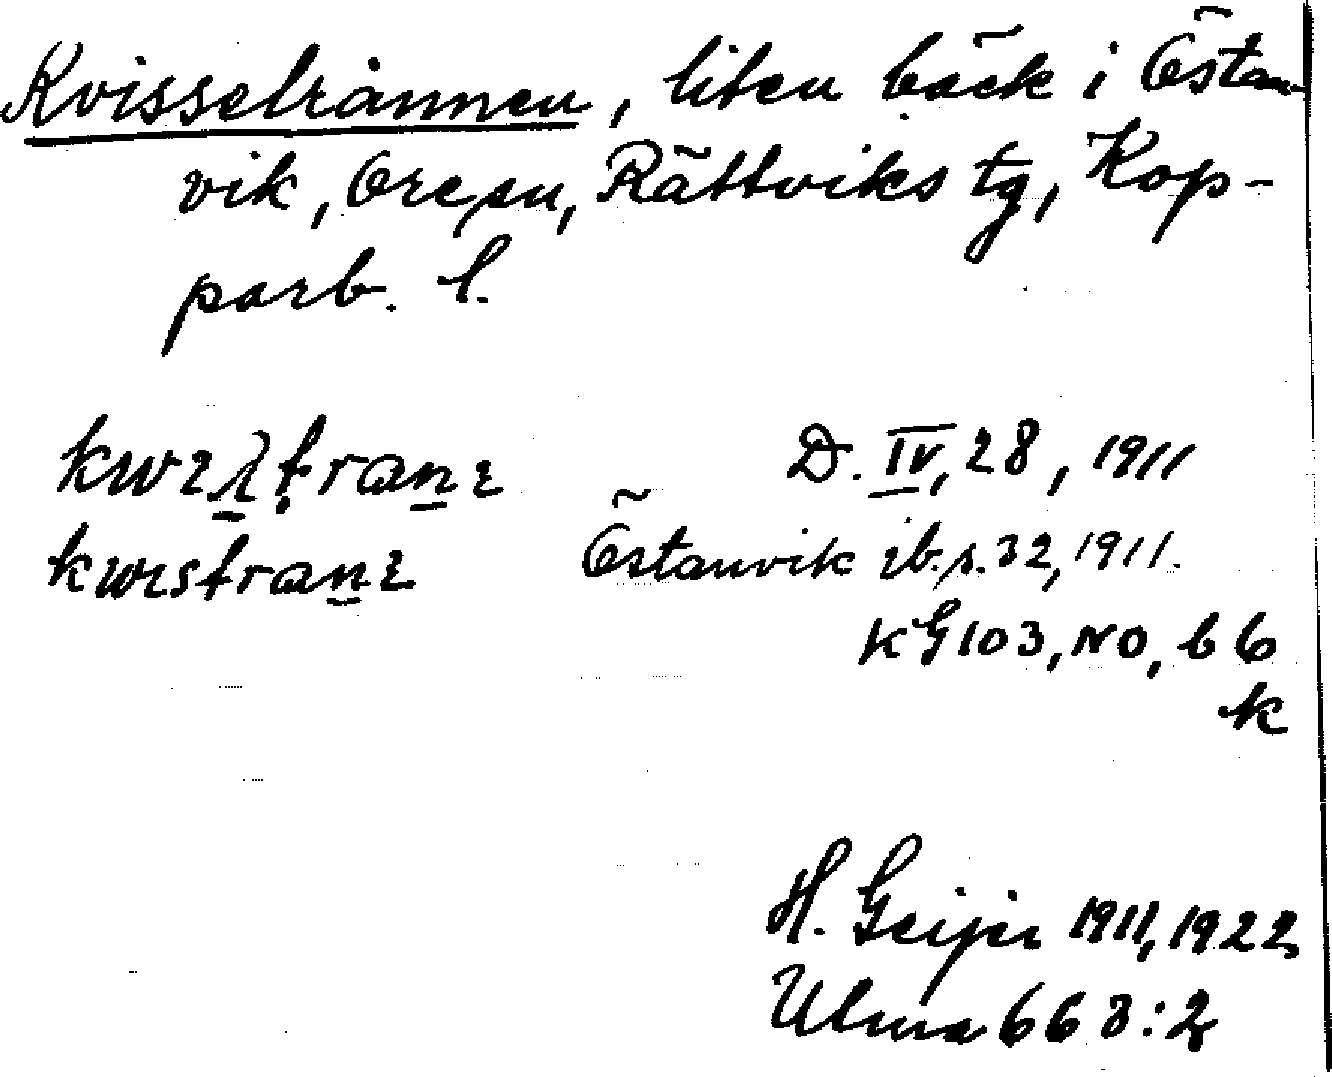 Kvisselrännen, liten bäck i Östan-
vik, Ore sn, Rättviks tg, Kop-
parb. l.
D. IV, 28, 1911
Östanvik ib. s. 32, 1911.
KG 103, NO, b 6
k
H. Geijer 1911, 1922
Ulma 663:2